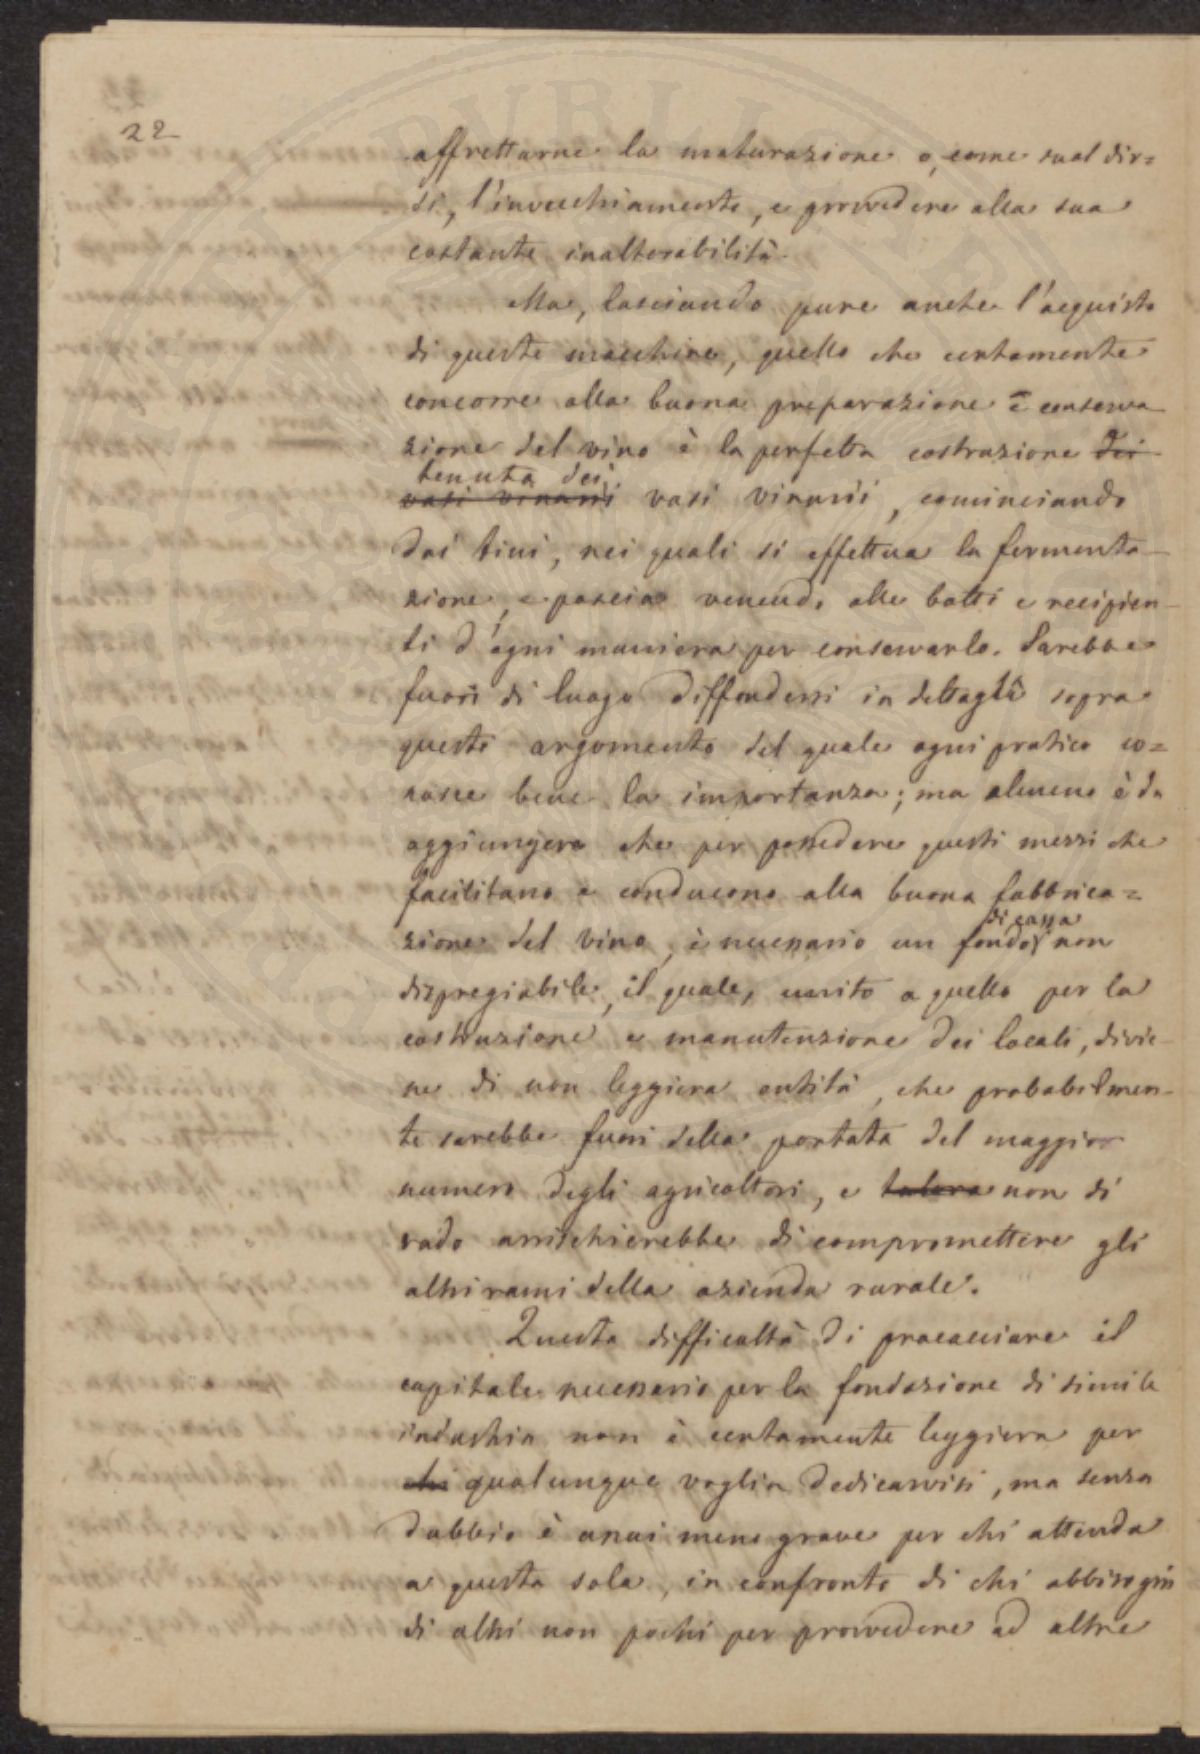 22
affrettarne la maturazione o, come suol dir=
si, l'invecchiamento, e provvedere alla sua
costante inalterabilità.
Ma, lasciando pure anche l'acquisto
di queste macchine, quello che certamente
concorre alla buona preparazione e conserva-
zione del vino è la perfetta costruzione dei
tenuta dei
vasi vinarii vasi vinarii, cominciando
dai tini, nei quali si effettua la fermenta-
zione, e poscia venendo alle botti e recipien-
ti d'ogni maniera per conservarlo. Sarebbe
fuori di luogo diffondersi in dettagli sopra
questo argomento del quale ogni pratico co=
nosce bene la importanza; ma almeno è da
aggiungere che per possedere questi mezzi che
facilitano e conducono alla buona fabbrica=
di cassa
zione del vino, è necessario un fondo non
dispregiabile, il quale, unito a quello per la
costruzione e manutenzione dei locali, divie-
ne di non leggiera entità, che probabilmen-
te sarebbe fuori della portata del maggior
numero degli agricoltori, e talora non di
rado arrischierebbe di compromettere gli
altri rami della azienda rurale.
Questa difficoltà di procacciare il
capitale necessario per la fondazione di simile
industria non è certamente leggiera per
chi qualunque voglia dedicarvisi, ma senza
dubbio è assai meno grave per chi attenda
a questa sola, in confronto di chi abbisogni
di altri non pochi per provvedere ad altre